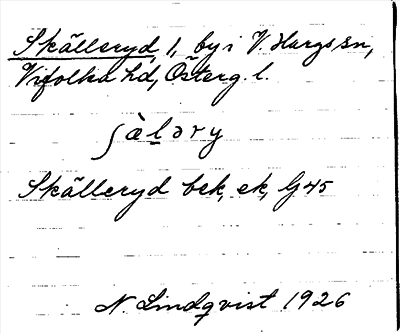 Skälleryd 1, by i V. Hargs sn,
Vifolka hd, Österg. l.
ʃàlәry
Skälleryd bek, ek, G 45
N. Lindqvist 1926